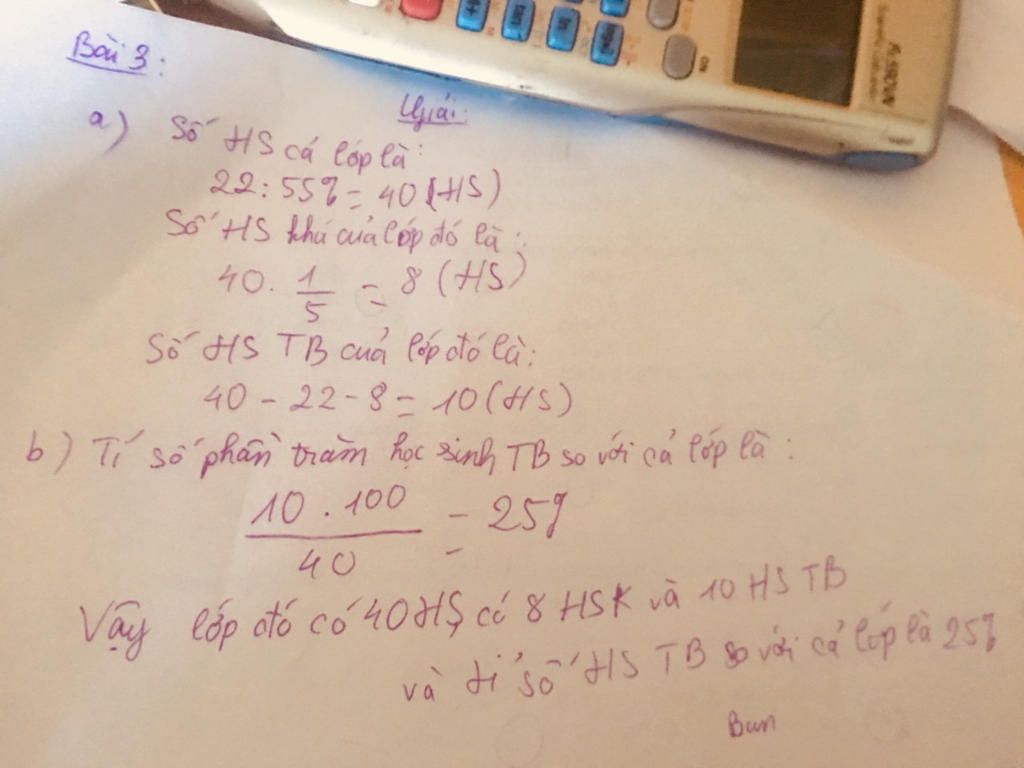 Bài 3:
Giải:
a) Số HS cả lớp là:
22 : 55% = 40 (HS)
Số HS khá của lớp đó là:
40 . 1/5 = 8 (HS)
Số HS TB của lớp đó là:
40 - 22 - 8 = 10 (HS)
b) Tỉ số phần trăm học sinh TB so với cả lớp là:
10 . 100 / 40 = 25%
Vậy lớp đó có 40 HS có 8 HSK và 10 HS TB
và tỉ số HS TB so với cả lớp là 25%
Bun
ON